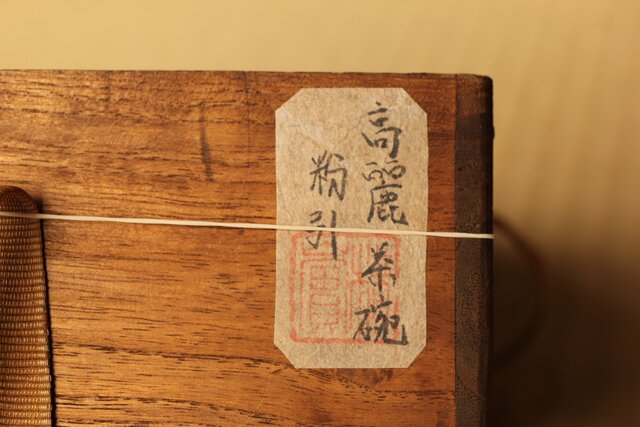 高麗茶碗
粉引